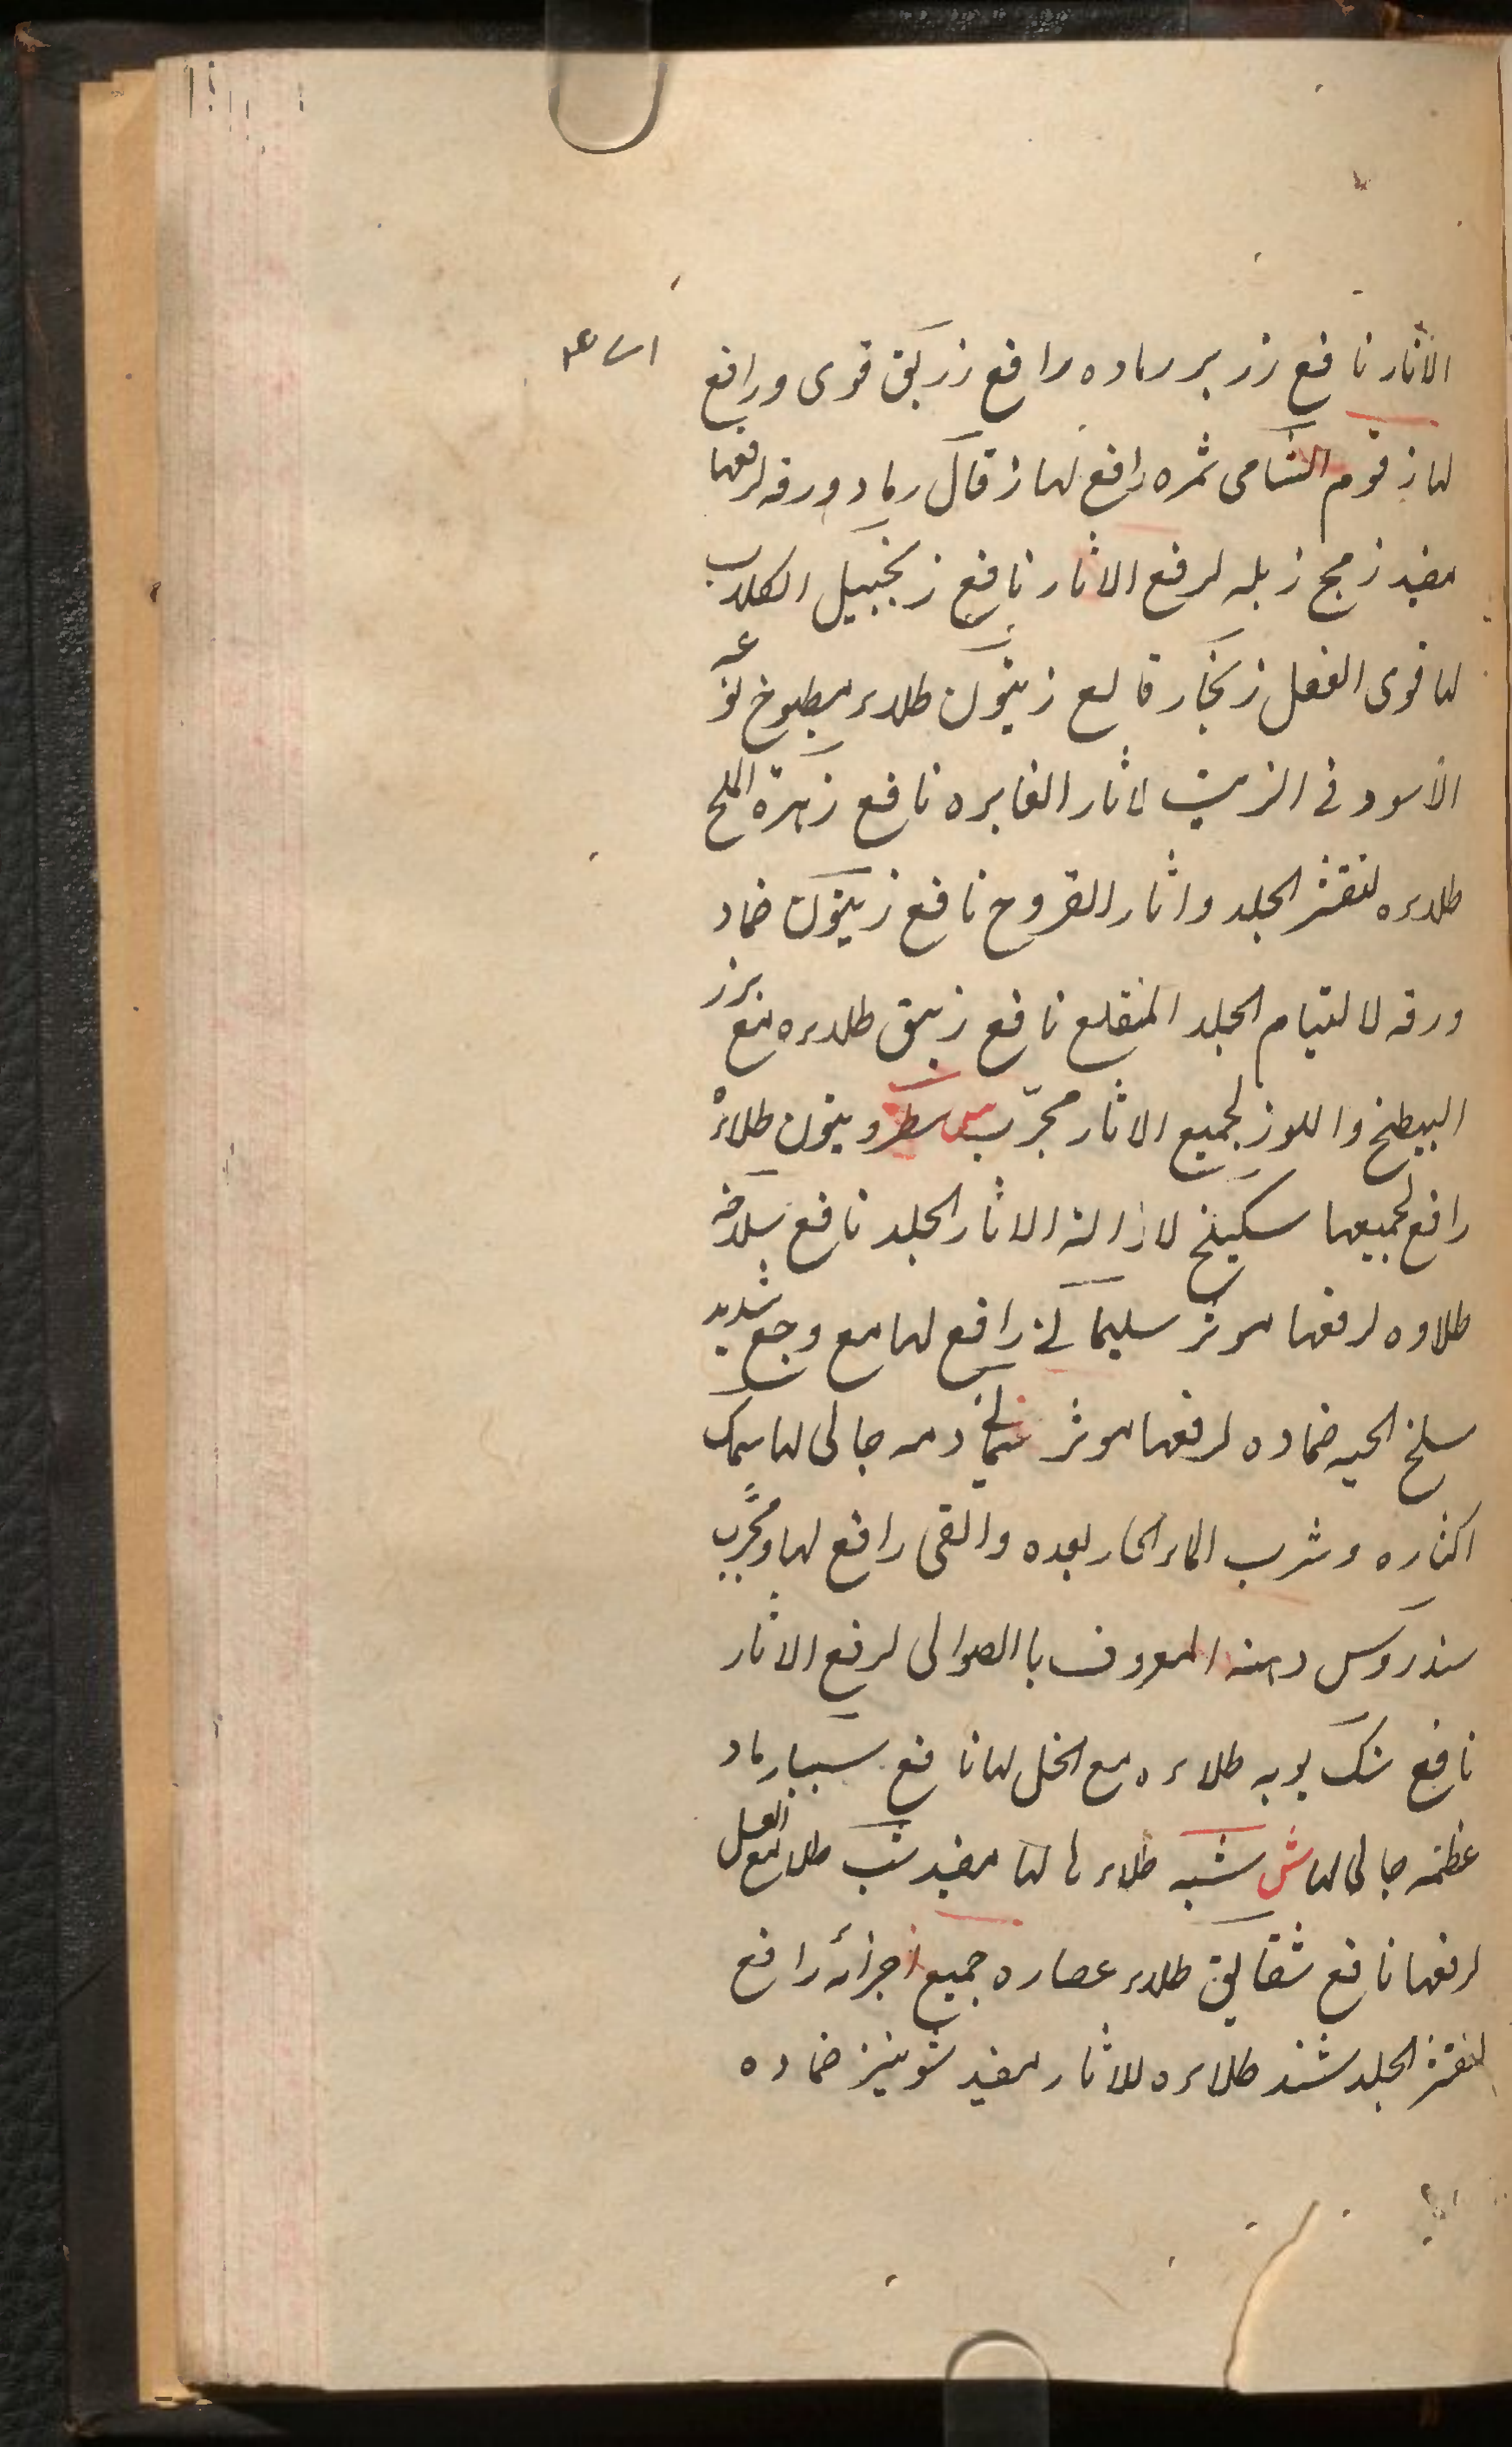 الآثار نافع زرير رماده رافع زرنيق قوى ورافع
لها زقوم الشامى ثمره رافع لها زقال رماد ورقه لرفعها
مفيد زمج زبله لرفع الاثار نافع زنجبيل الكلاب
لها قوى الفعل زنجار قالع زيتون طلاء مطبوخ نوعه
الأسود فى الزيت لاثار الغابره نافع زهرة الملح
طلاءه لتقشر الجلد واثار القروح نافع زيتون ضماد
ورقه لالتيام الجلد المنقلع نافع زيبق طلاءه مع برز
البيطخ واللوز لجميع الاثار مجرّب س سطرونيون طلاءه
رافع لجميعها سكبينج لازالة الاثار الجلد نافع سلاخه
طلاوه لرفعها موثر سليمانى رافع لها مع وجع شديد
سلخ الحيه ضماده لرفعها موثر دمه جالى لها سمك
اكثاره وشرب الماء الحار بعده والقى رافع لها ومجرّب
سندروس دهنه المعروف باالصوالى لرفع الاثار
نافع سنك بويه طلاءه مع الخل لها نافع سيبيا رماد
عظمه جالى لها ش شبه طلاءها لها مفيد شب طلا مع العسل
لرفعها نافع شقايق طلاء عصاره جميع اجزائه رافع
لتقشر الجلد شند طلاءه للاثار مفيد شونيز ضماده